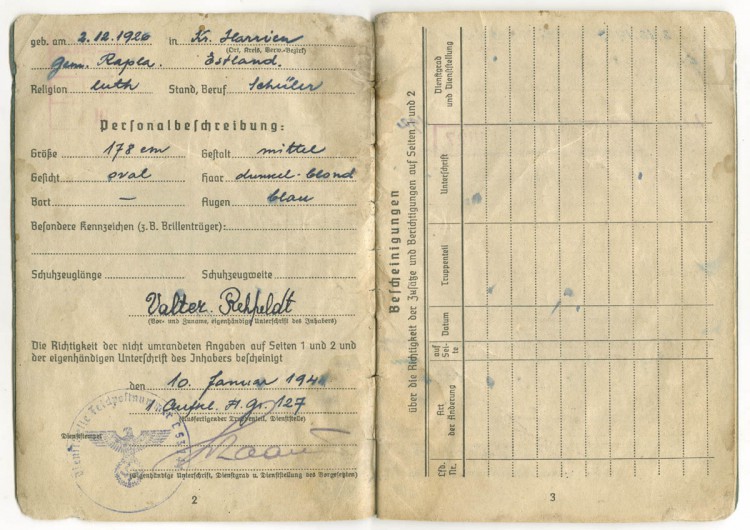 geb. am 2.12.1926 in Kr. Harrien
(Ort, Kreis, Verw.-Bezirk)
Gem. Rapla. Estland.
Religion luth Stand, Beruf Schüler
Personalbeschreibung:
Größe 178 cm Gestalt mittel
Gesicht oval Haar dunkel-blond
Bart – Augen blau
Besondere Kennzeichen (z.B. Brillenträger):
Schuhzeuglänge Schuhzeugweite
Valter Rehfeldt
(Vor- und Zuname, eigenhändige Unterschrift des Inhabers)
Die Richtigkeit der nicht umrandeten Angaben auf Seiten 1 und 2 und
der eigenhändigen Unterschrift des Inhabers bescheinigt
den 10. Januar 194
1. Aufkl. Fl. Gr. 127
(Ausfertigender Truppenteil, Dienststelle)
Dienststempel
(Eigenhändige Unterschrift, Dienstgrad u. Dienststellung des Vorgesetzten)
2
Bescheinigungen
über die Richtigkeit der Zusätze und Berichtigungen auf Seiten 1 und 2
Lfd. Nr.
Art der Änderung
auf Sei-te
Datum
Truppenteil
Unterschrift
Dienstgrad und Dienststellung
3